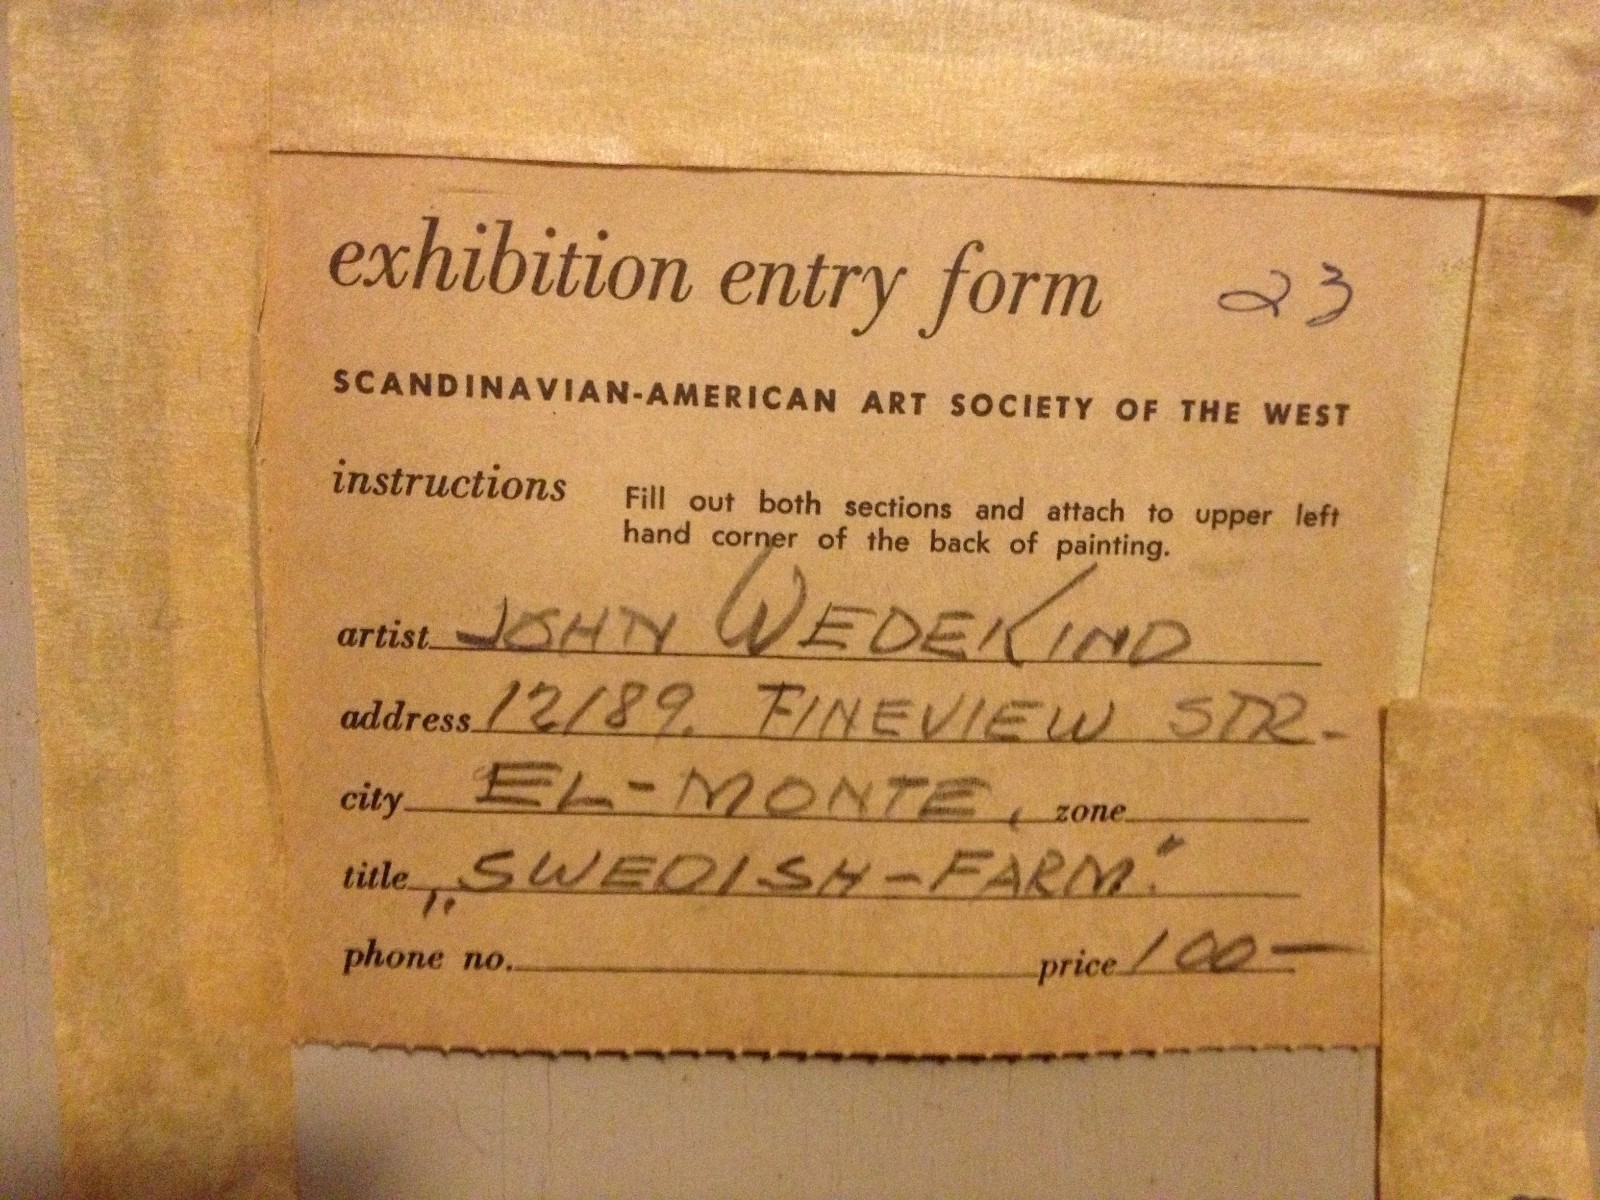 exhibition entry form 23
SCANDINAVIAN-AMERICAN ART SOCIETY OF THE WEST
instructions Fill out both sections and attach to upper left
hand corner of the back of painting.
artist JOHN WEDEKIND
address 12189. FINEVIEW STR-
city EL-MONTE, zone
title „SWEDISH-FARM."
phone no. price 100—